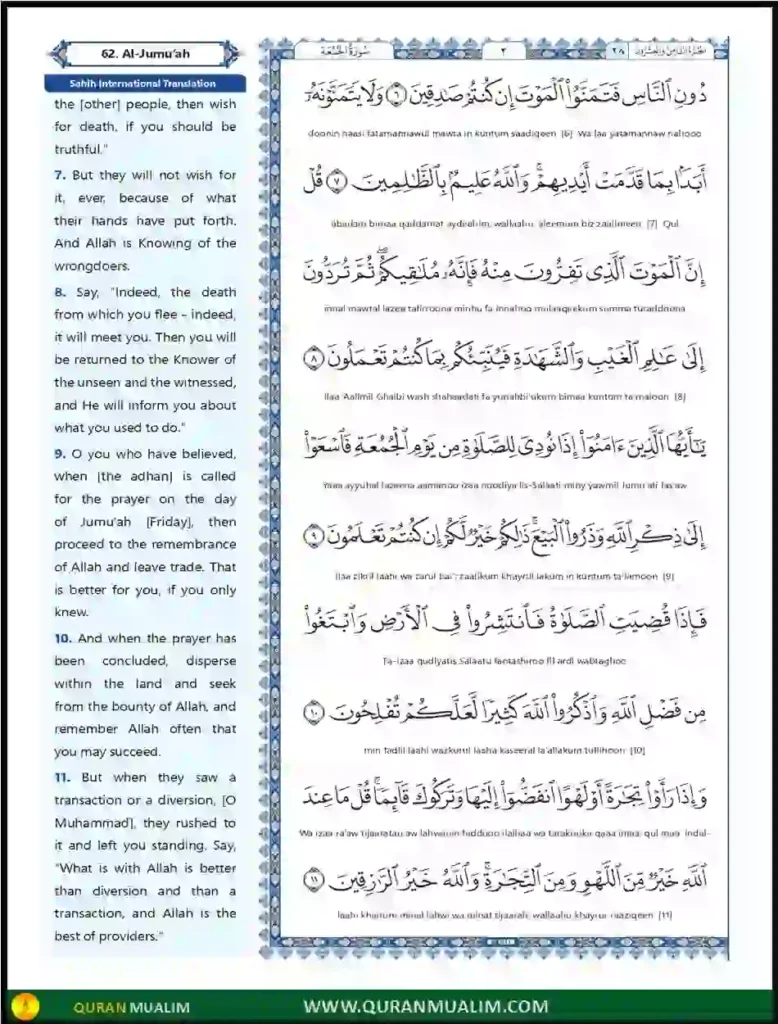 62. Al-Jumu'ah
Sahih International Translation
the [other] people, then wish
for death, if you should be
truthful."
7. But they will not wish for
it, ever, because of what
their hands have put forth.
And Allah is Knowing of the
wrongdoers.
8. Say, "Indeed, the death
from which you flee – indeed,
it will meet you. Then you will
be returned to the Knower of
the unseen and the witnessed,
and He will inform you about
what you used to do."
9. O you who have believed,
when [the adhan] is called
for the prayer on the day
of Jumu'ah [Friday], then
proceed to the remembrance
of Allah and leave trade. That
is better for you, if you only
knew.
10. And when the prayer has
been concluded, disperse
within the land and seek
from the bounty of Allah, and
remember Allah often that
you may succeed.
11. But when they saw a
transaction or a diversion, [O
Muhammad], they rushed to
it and left you standing. Say,
"What is with Allah is better
than diversion and than a
transaction, and Allah is the
best of providers."
سُورَةُ الجُمُعَة
٢
٢٨
دُونِ ٱلنَّاسِ فَتَمَنَّوُاْ ٱلْمَوْتَ إِن كُنتُمْ صَـٰدِقِينَ ٦ وَلَا يَتَمَنَّوْنَهُۥٓ
doonin naasi fatamannawul mawta in kuntum saadiqeen [6] Wa laa yatamannaw nahooo
أَبَدَۢا بِمَا قَدَّمَتْ أَيْدِيهِمْ ۚ وَٱللَّهُ عَلِيمٌۢ بِٱلظَّـٰلِمِينَ ٧ قُلْ
abadam bimaa qaddamat aydeehim; wallaahu 'aleemum biz zaalimeen [7] Qul
إِنَّ ٱلْمَوْتَ ٱلَّذِى تَفِرُّونَ مِنْهُ فَإِنَّهُۥ مُلَـٰقِيكُمْ ۖ ثُمَّ تُرَدُّونَ
innal mawtal lazee tafirroona minhu fa innahoo mulaaqeekum summa turaddoona
إِلَىٰ عَـٰلِمِ ٱلْغَيْبِ وَٱلشَّهَـٰدَةِ فَيُنَبِّئُكُم بِمَا كُنتُمْ تَعْمَلُونَ ٨
ilaa 'Aalimil Ghaibi wash shahaadati fa yunabbi'ukum bimaa kuntum ta'maloon [8]
يَـٰٓأَيُّهَا ٱلَّذِينَ ءَامَنُوٓاْ إِذَا نُودِىَ لِلصَّلَوٰةِ مِن يَوْمِ ٱلْجُمُعَةِ فَٱسْعَوْاْ
Yaaa ayyuhal lazeena aamanoo izaa noodiya lis-Salaati miny yawmil Jumu'ati fas'aw
إِلَىٰ ذِكْرِ ٱللَّهِ وَذَرُواْ ٱلْبَيْعَ ۚ ذَٰلِكُمْ خَيْرٌ لَّكُمْ إِن كُنتُمْ تَعْلَمُونَ ٩
ilaa zikril laahi wa zarul bai'; zaalikum khayrul lakum in kuntum ta'lamoon [9]
فَإِذَا قُضِيَتِ ٱلصَّلَوٰةُ فَٱنتَشِرُواْ فِى ٱلْأَرْضِ وَٱبْتَغُواْ
Fa-izaa qudiyatis Salaatu fantashiroo fil ardi wabtaghoo
مِن فَضْلِ ٱللَّهِ وَٱذْكُرُواْ ٱللَّهَ كَثِيرًا لَّعَلَّكُمْ تُفْلِحُونَ ١٠
min fadlil laahi wazkurul laaha kaseeral la'allakum tuflihoon [10]
وَإِذَا رَأَوْاْ تِجَـٰرَةً أَوْ لَهْوًا ٱنفَضُّوٓاْ إِلَيْهَا وَتَرَكُوكَ قَآئِمًا ۚ قُلْ مَا عِندَ
Wa izaa ra'aw tijaaratan aw lahwanin fadduoo ilaihaa wa tarakooka qaaa'imaa; qul maa 'indal-
ٱللَّهِ خَيْرٌ مِّنَ ٱللَّهْوِ وَمِنَ ٱلتِّجَـٰرَةِ ۚ وَٱللَّهُ خَيْرُ ٱلرَّٰزِقِينَ ١١
laahi khairum minal lahwi wa minat tijaarah; wallaahu khayrur raaziqeen [11]
QURAN MUALIM
WWW.QURANMUALIM.COM